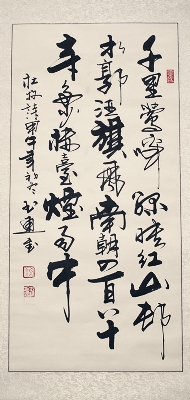 千里鶯啼綠映紅山邨
水郭酒旗風南朝四百八十
寺多少樓臺煙雨中
杜牧詩甲午年初冬